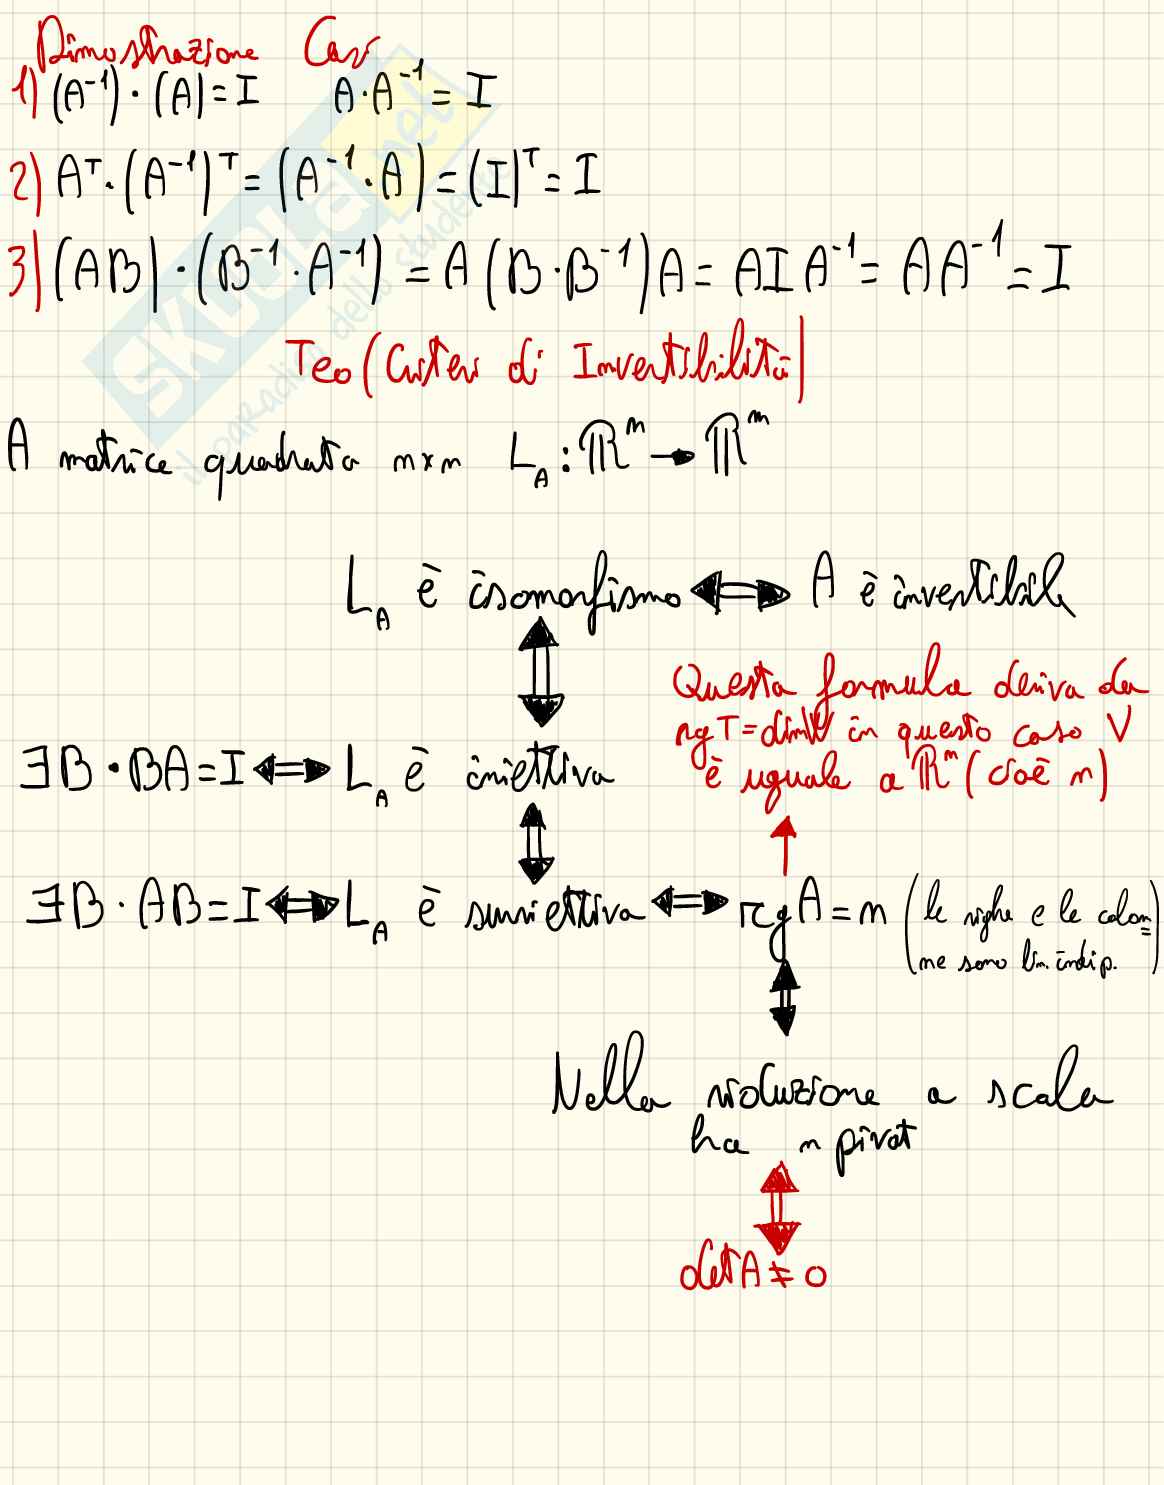 Dimostrazione Casi
1) (A⁻¹)·(A)=I A·A⁻¹=I
2) Aᵀ·(A⁻¹)ᵀ=(A⁻¹·A)=(I)ᵀ=I
3) (AB)·(B⁻¹·A⁻¹)=A(B·B⁻¹)A=AIA⁻¹=AA⁻¹=I
Teo (Criteri di Invertibilità)
A matrice quadrata n×n L_A: ℝⁿ → ℝⁿ
L_A è isomorfismo ⟺ A è invertibile
Questa formula deriva da
rgT=dimV in questo caso V
è uguale a ℝⁿ (cioè n)
∃B·BA=I ⟺ L_A è iniettiva
∃B·AB=I ⟺ L_A è suriettiva ⟺ rgA=n (le righe e le colon=
ne sono lin. indip.)
Nella riduzione a scala
ha n pivot
detA≠0
SKUOLA.net
il paradiso dello studente